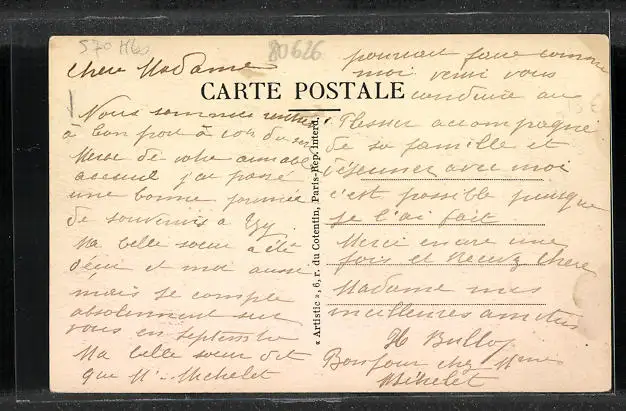 80626
Chere Madame
CARTE POSTALE
Nous sommes rentrés
à bon port à 10h du soir
Merci de votre aimable
accueil j'ai passé
une bonne journée
de souvenirs à
Ma belle soeur a été
déçue et moi aussi
mais je compte
absolument sur
vous en septembre
Ma belle soeur dit
que Mr Michelet
pourrait faire comme
moi venir vous
conduire au
Plessier accompagné
de sa famille et
déjeuner avec moi
c'est possible puisque
je l'ai fait
Merci encore une
fois et recevez chere
Madame mes
meilleures amitiés
H Bulloy
Bonjour chez Mme
Michelet
« Artistic », 6, r. du Cotentin, Paris-Rep. Interd.